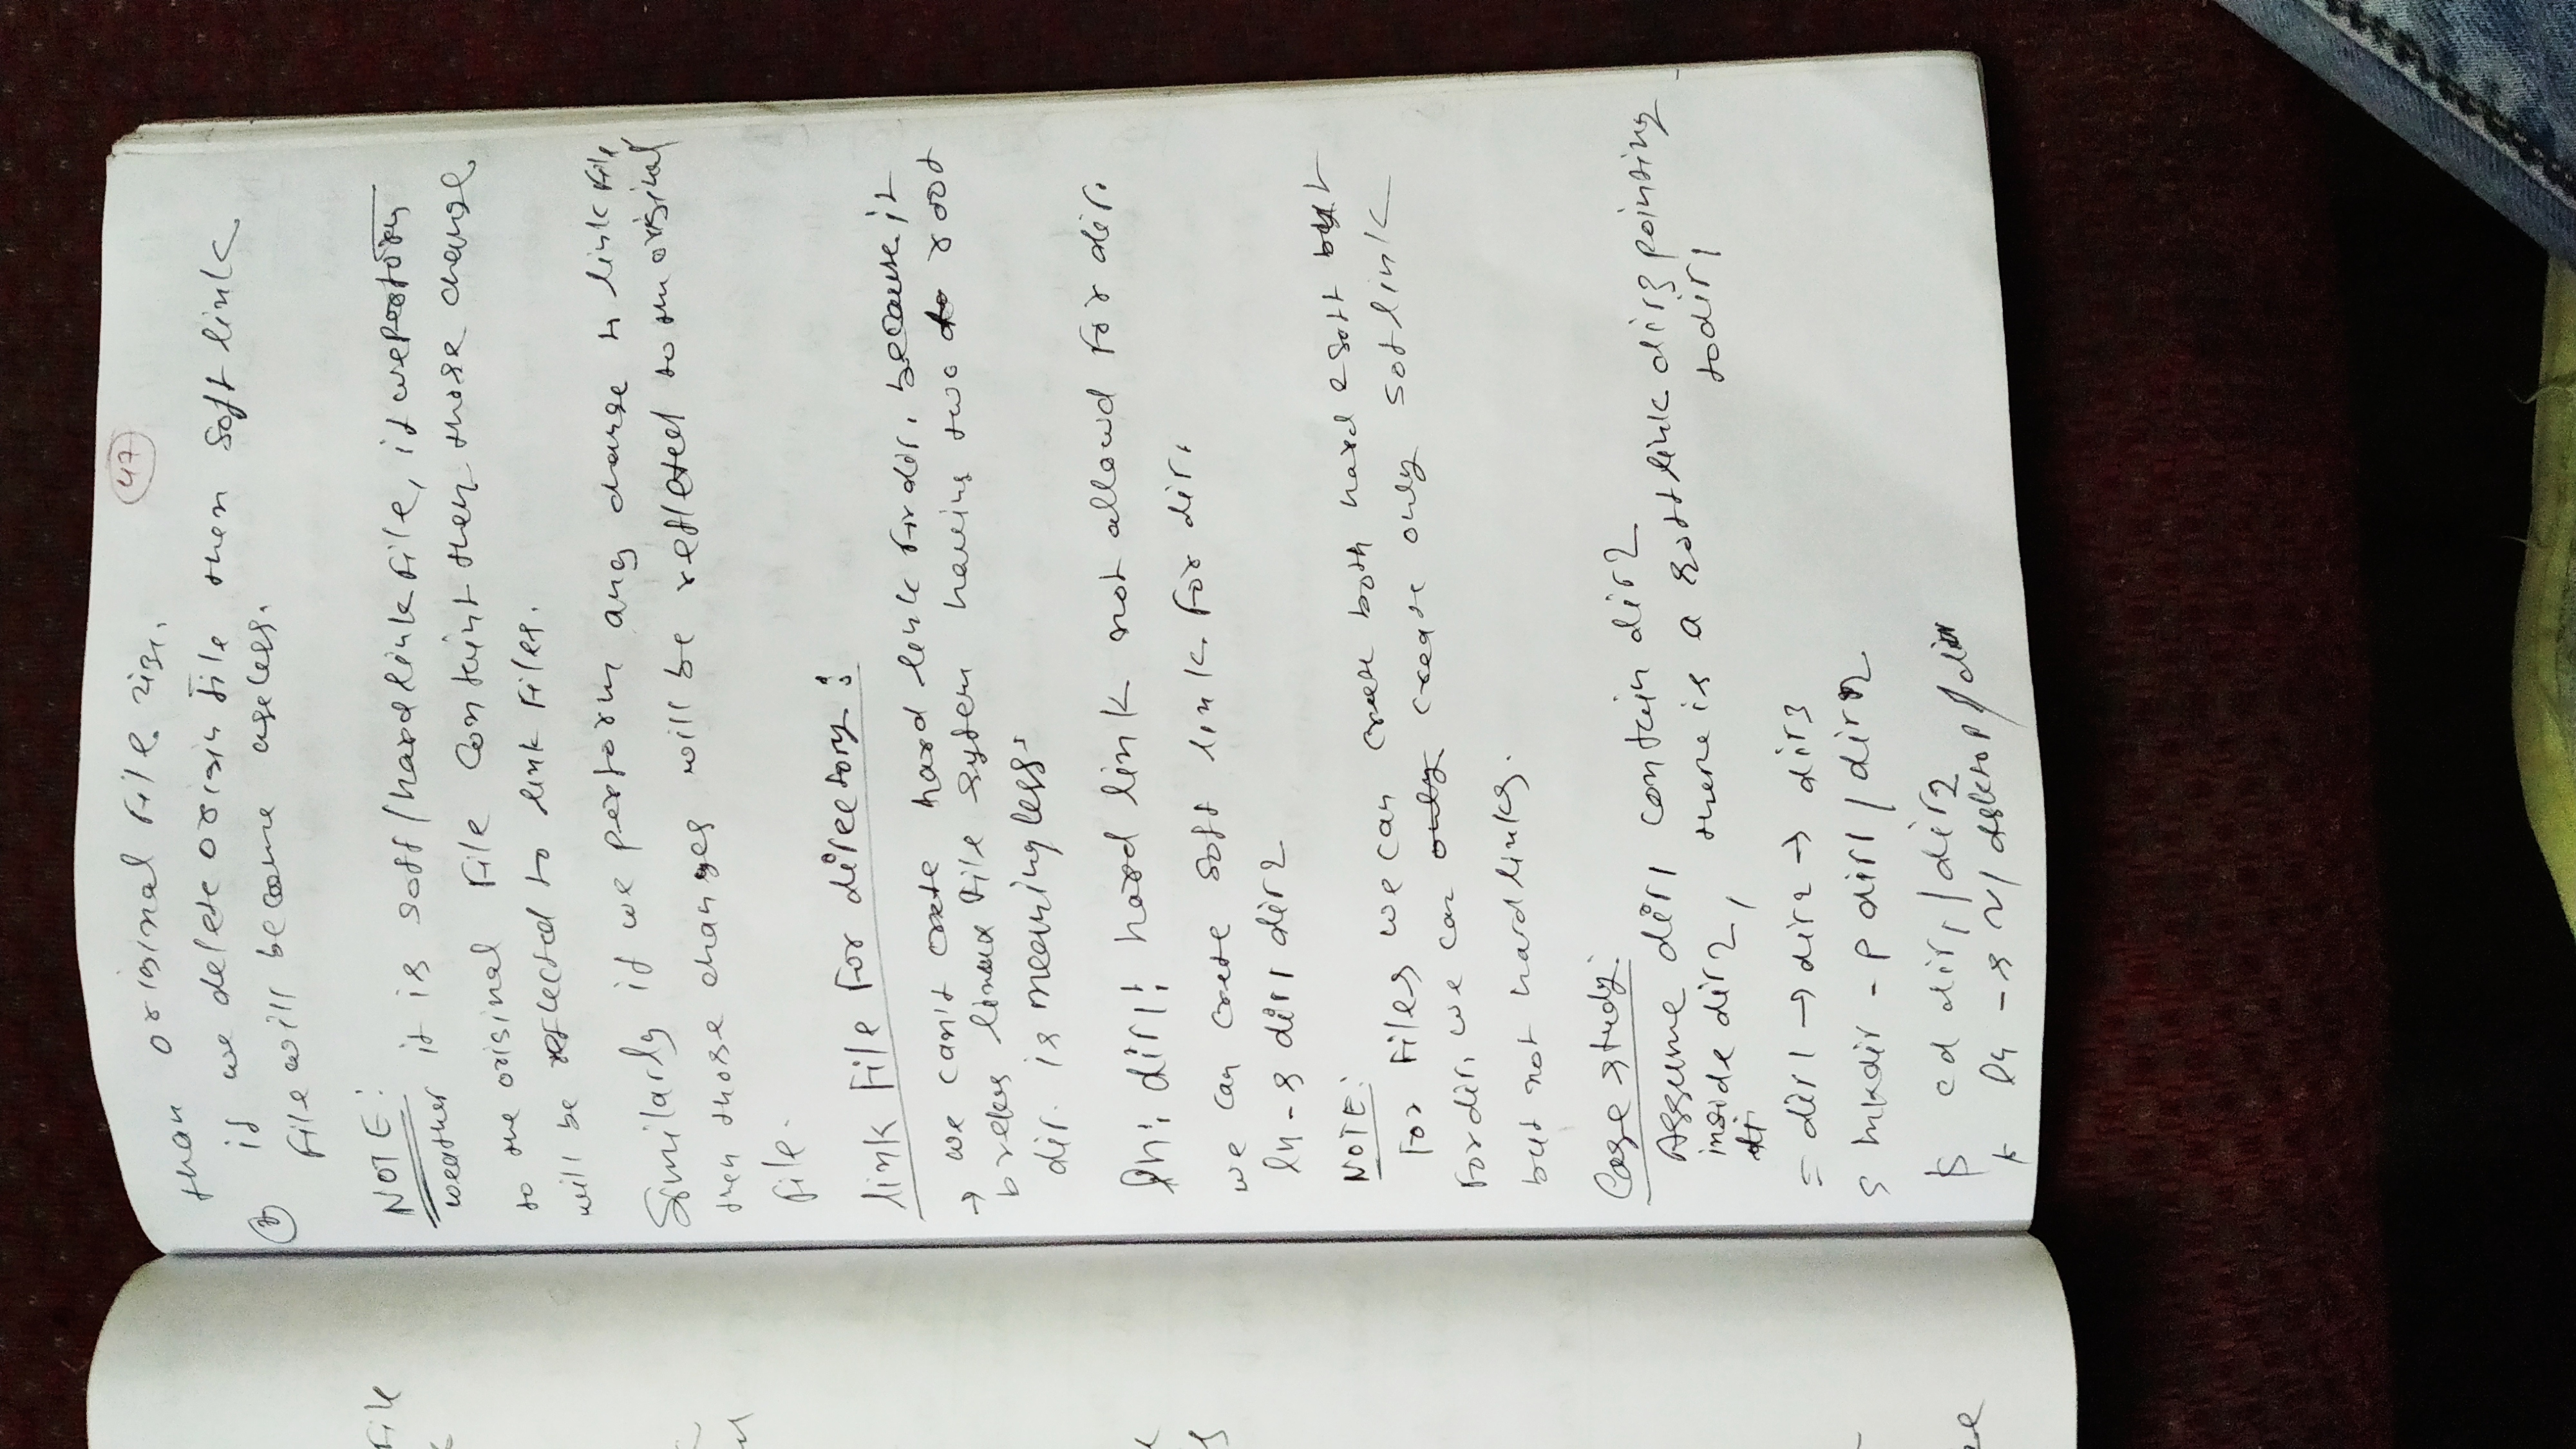 47
than original File size.
7 if we delete origin file then Soft link
File will become useless.
NOTE:
weather it is soft/hard link File, if we perform
to the original File Containt then those change
will be reflected to link Files.
Similarly if we perform any change to link File,
then those changes will be refleted to the original
File.
link File For directory:
→ we can't crete hard link For dir. because it
brekes linux File system having two root
dir. is meaningless.
ln: dir1: hard link not allowd For dir.
we can crete soft link For dir.
ln -s dir1 dir2
NOTE:
For Files we can create both hard & soft but
For dir, we can only create only sot link
but not hard links.
Case study:
Assume dir1 contain dir2
inside dir2, there is a soft link dir3 pointing
to dir1
di
= dir1 → dir2 → dir3
$ mkdir -p dir1/dir2
$ cd dir1/dir2
$ ln -s ~/desktop/dir
File